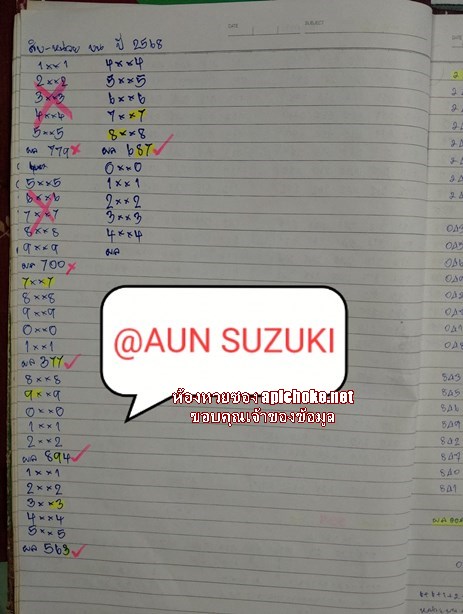 สิบ-หน่วย บน ปี 2568
1××1
2××2
3××3
4××4
5××5
ผล 779×
5××5
6××6
7××7
8××8
9××9
ผล 700×
7××7
8××8
9××9
0××0
1××1
ผล 377✓
8××8
9××9
0××0
1××1
2××2
ผล 894✓
1××1
2××2
3××3
4××4
5××5
ผล 563✓
4××4
5××5
6××6
7××7
8××8
ผล 687✓
0××0
1××1
2××2
3××3
4××4
ผล
@AUN SUZUKI
ห้องหวยซอง apichoke.net
ขอบคุณเจ้าของข้อมูล